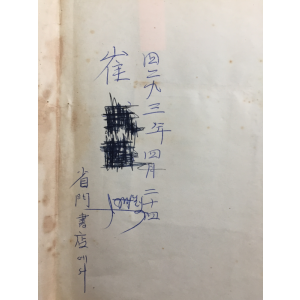 四二九三年 四月 二十四
崔
省門書店에서